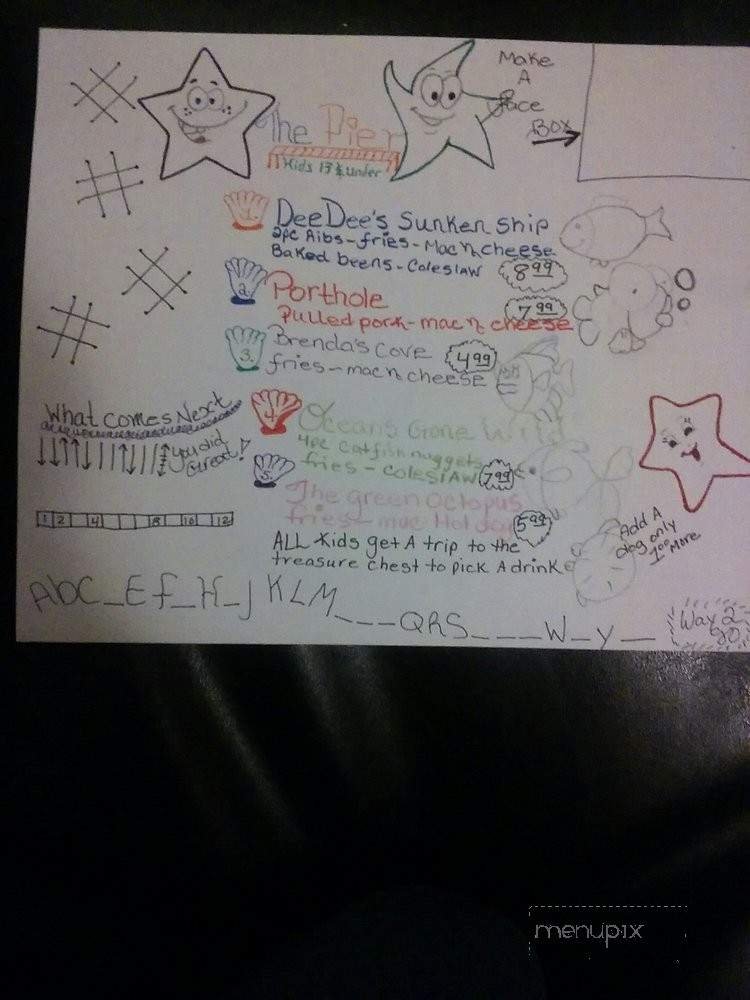 Make
A
face
Box
The Pier
Kids 13 & under
1. DeeDee's Sunken Ship
2pc Ribs - fries - Mac n cheese
Baked beens - Coleslaw 8 99
2. Porthole 7 99
Pulled pork - mac n cheese
3. Brenda's Cove 4 99
fries - mac n cheese
What comes Next
you did
Great!
4. Oceans Gone Wild
4pc catfish nuggets
fries - coleslaw 7 99
5. The green Octopus
fries - mac Hot dog 5 99
1 2 4 8 10 12
Add A
dog only
1 00 More
ALL Kids get A trip to the
treasure chest to pick A drink
AbC_Ef_H_J KLM___QRS____W_y__
Way 2
go
menupix